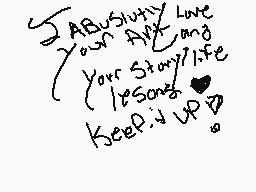 I ABuSlutly Love
your Art ang
your story/life
lesons ♥
KeeP it UP!